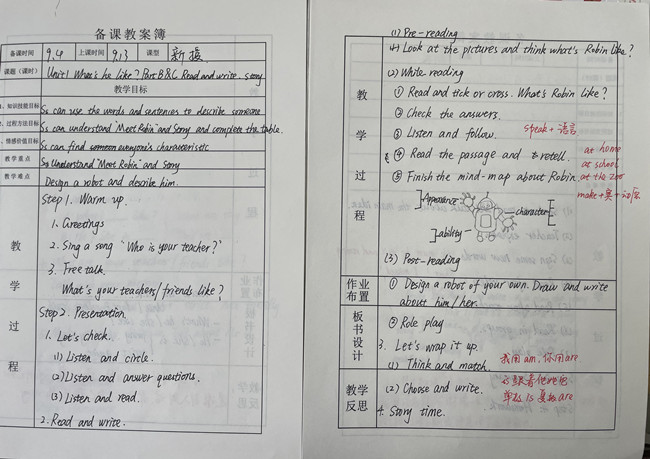 备课教案簿
备课时间 9.4 上课时间 9.13 课型 新授
课题(课时) Unit1 What's he like? Part B&C Read and write. story
教学目标
1、知识技能目标 Ss can use the words and sentences to describe someone
2、过程方法目标 Ss can understand "Meet Robin" and Story and complete the table.
3、情感价值目标 Ss can find everyone's characteristic
教学重点 Ss understand "Meet Robin" and Story
教学难点 Design a robot and describe him.
教学过程
Step 1. Warm up.
1. Greetings
2. Sing a song "Who is your teacher?"
3. Free talk.
What's your teachers/friends like?
Step 2. Presentation
1. Let's check.
(1) Listen and circle.
(2) Listen and answer questions.
(3) Listen and read.
2. Read and write.
教学过程
(1) Pre-reading
Look at the pictures and think what's Robin like?
(2) While reading
① Read and tick or cross. What's Robin like?
② Check the answers.
③ Listen and follow. speak + 语言
④ Read the passage and retell. at home
at school
⑤ Finish the mind-map about Robin. at the zoo
make+宾+动原
Appearance
character
ability
(3) Post-reading
作业布置
① Design a robot of your own. Draw and write
about him/her.
板书设计
② Role play
3. Let's wrap it up.
(1) Think and match. 我用am, 你用are
教学反思
is跟着他她它
(2) Choose and write. 单数is复数are
4. Story time.